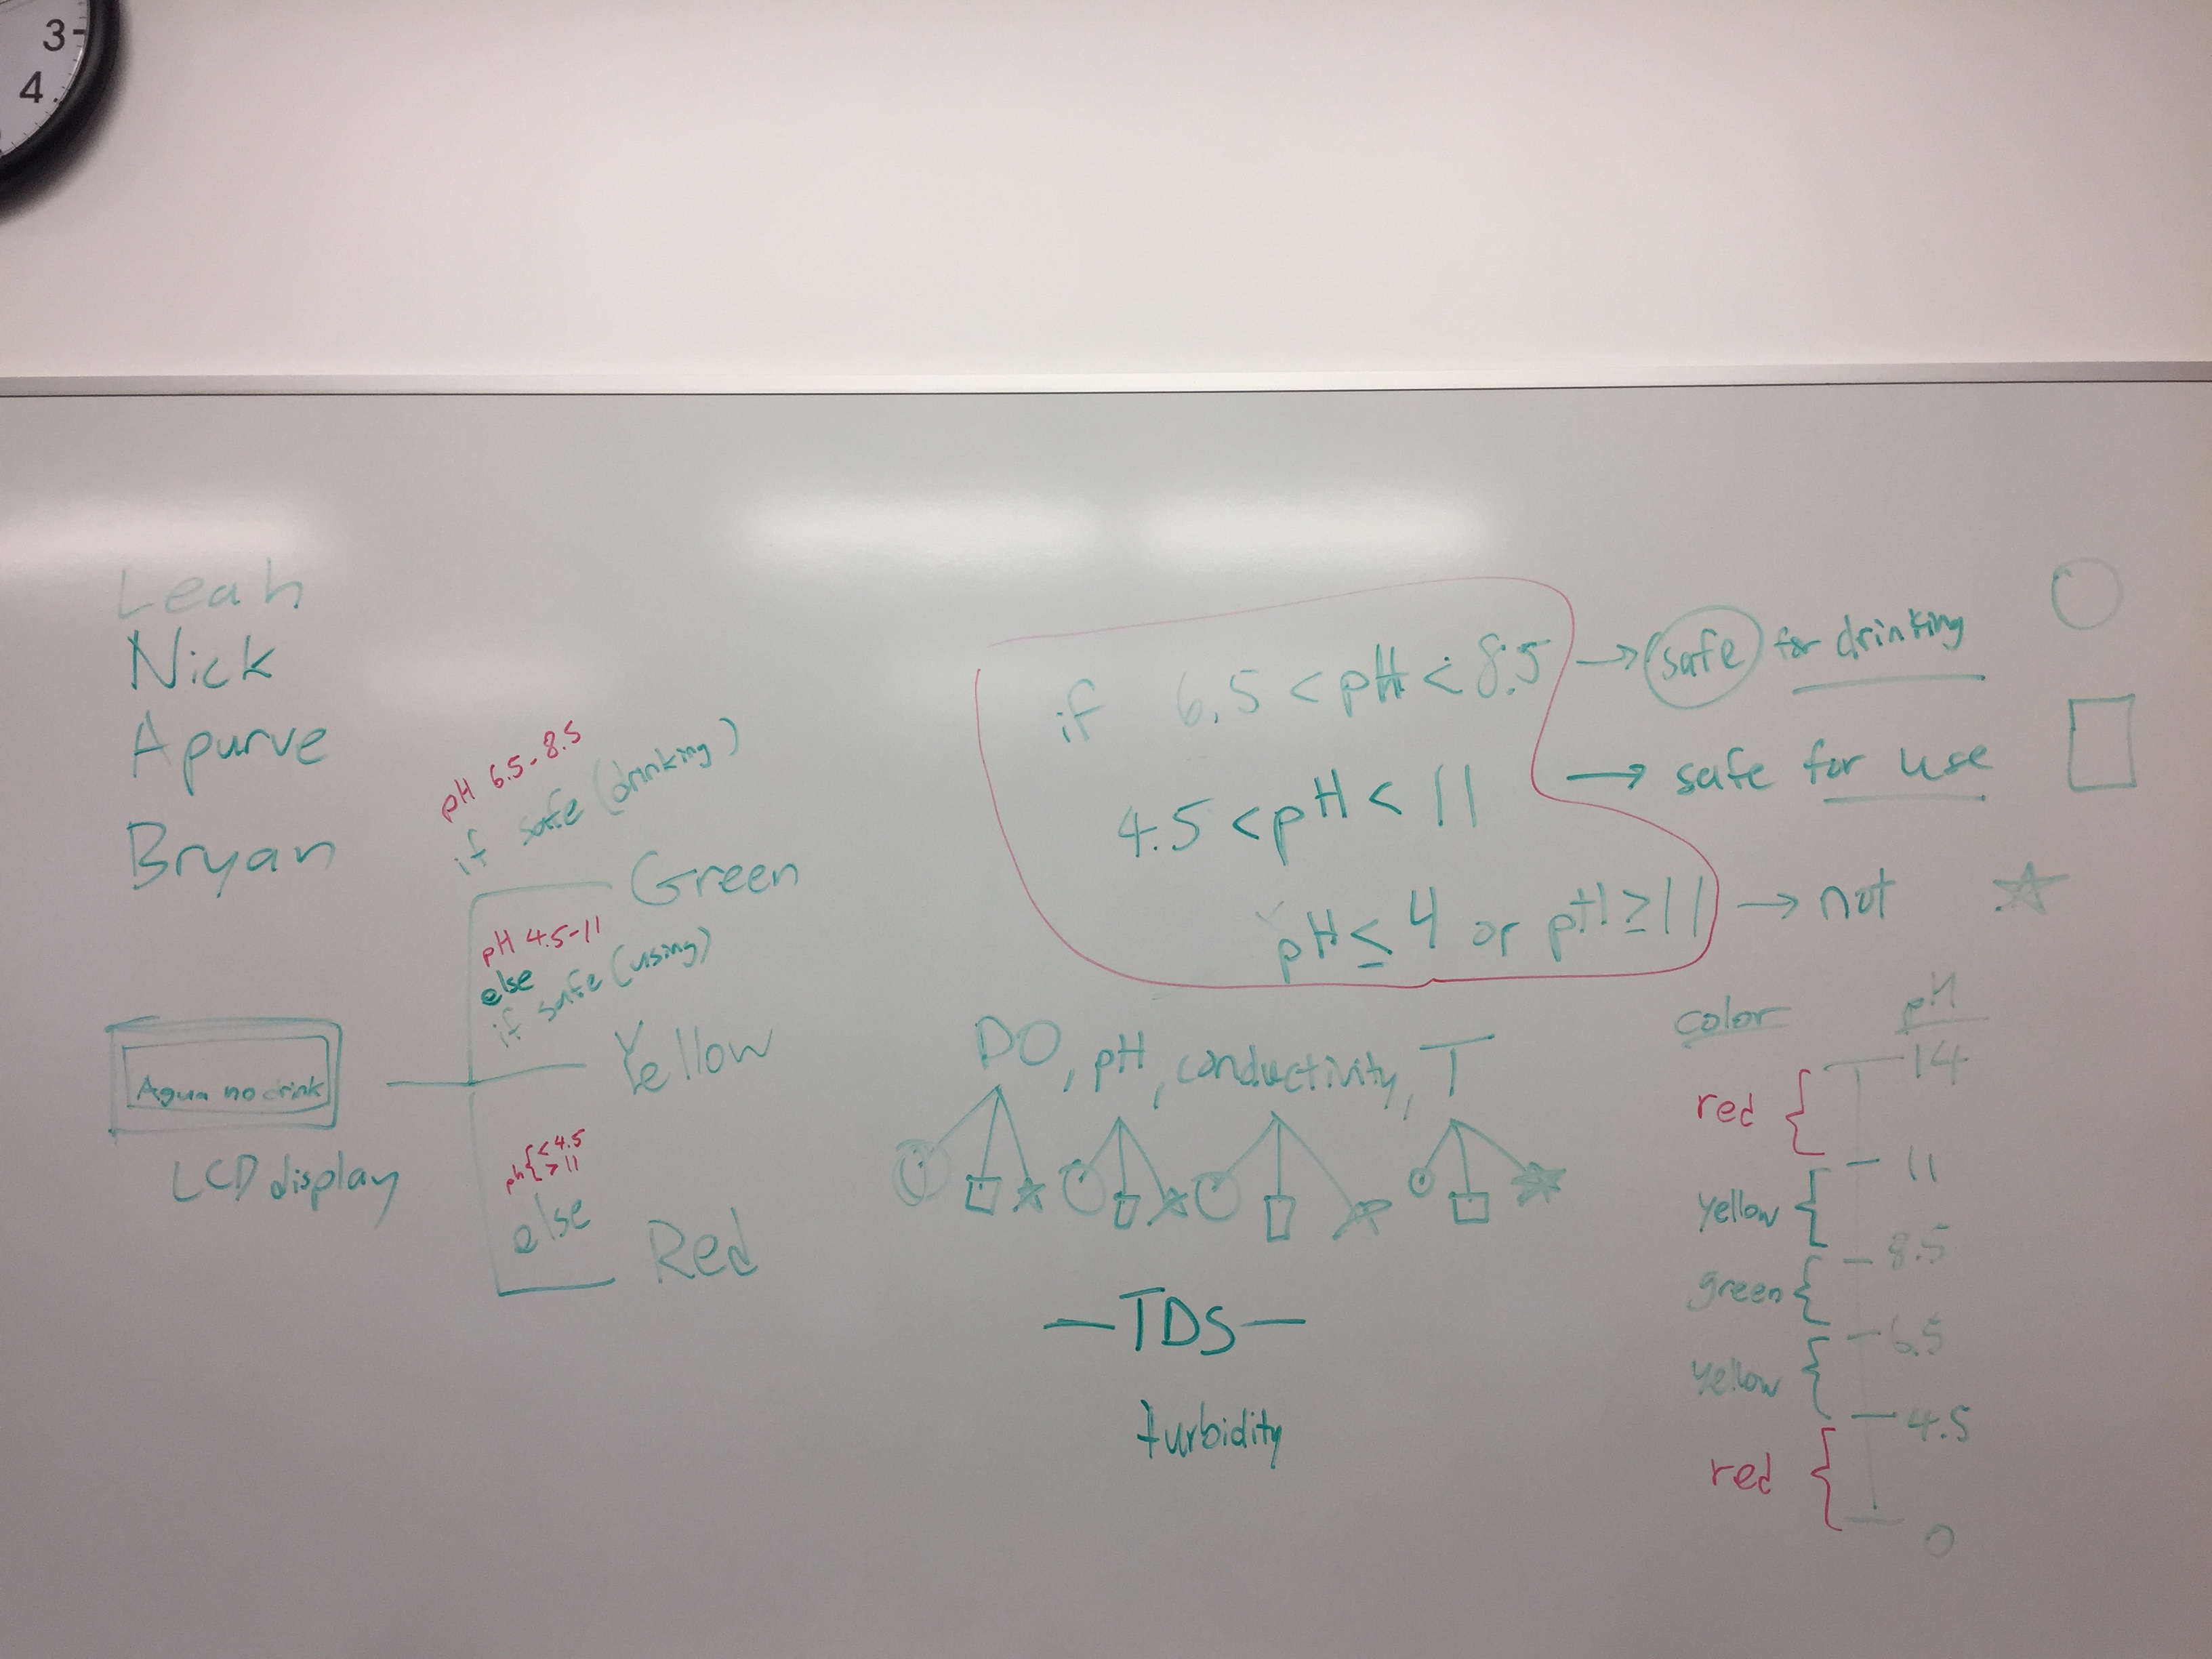 3
4
Leah
Nick
Apurve
Bryan
pH 6.5-8.5
if safe (drinking)
Green
pH 4.5-11
else
if safe (using)
Yellow
Agua no drink
LCD display
ph { < 4.5
> 11
else
Red
if 6.5 < pH < 8.5 → safe for drinking
4.5 < pH < 11 → safe for use
pH ≤ 4 or pH ≥ 11 → not
DO, pH, conductivity, T
—TDS—
turbidity
color pH
14
red
11
yellow
8.5
green
6.5
yellow
4.5
red
0